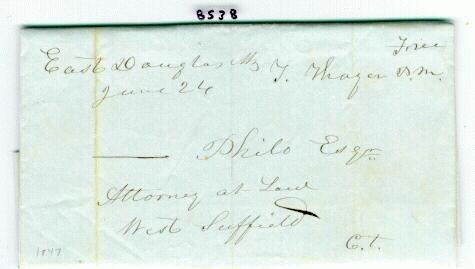 8538
Free
East Douglas Ms T. Thayer P.M.
June 24
Philo Esqr
Attorney at Law
West Suffield
C.t.
1847